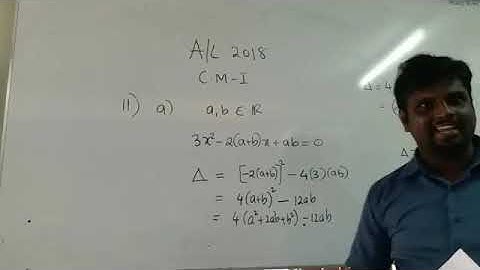 A/L 2018
C M-I
11) a) a,b ∈ ℝ
3x²-2(a+b)x+ab=0
Δ = [-2(a+b)]² - 4(3)(ab)
= 4(a+b)² - 12ab
= 4(a²+2ab+b²)-12ab
Δ = 4